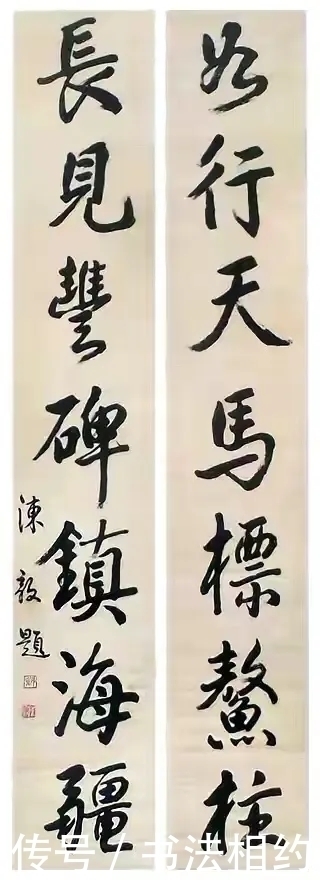 如行天馬標鰲柱
長見豐碑鎮海疆
陳毅題
传号 / 书法相约